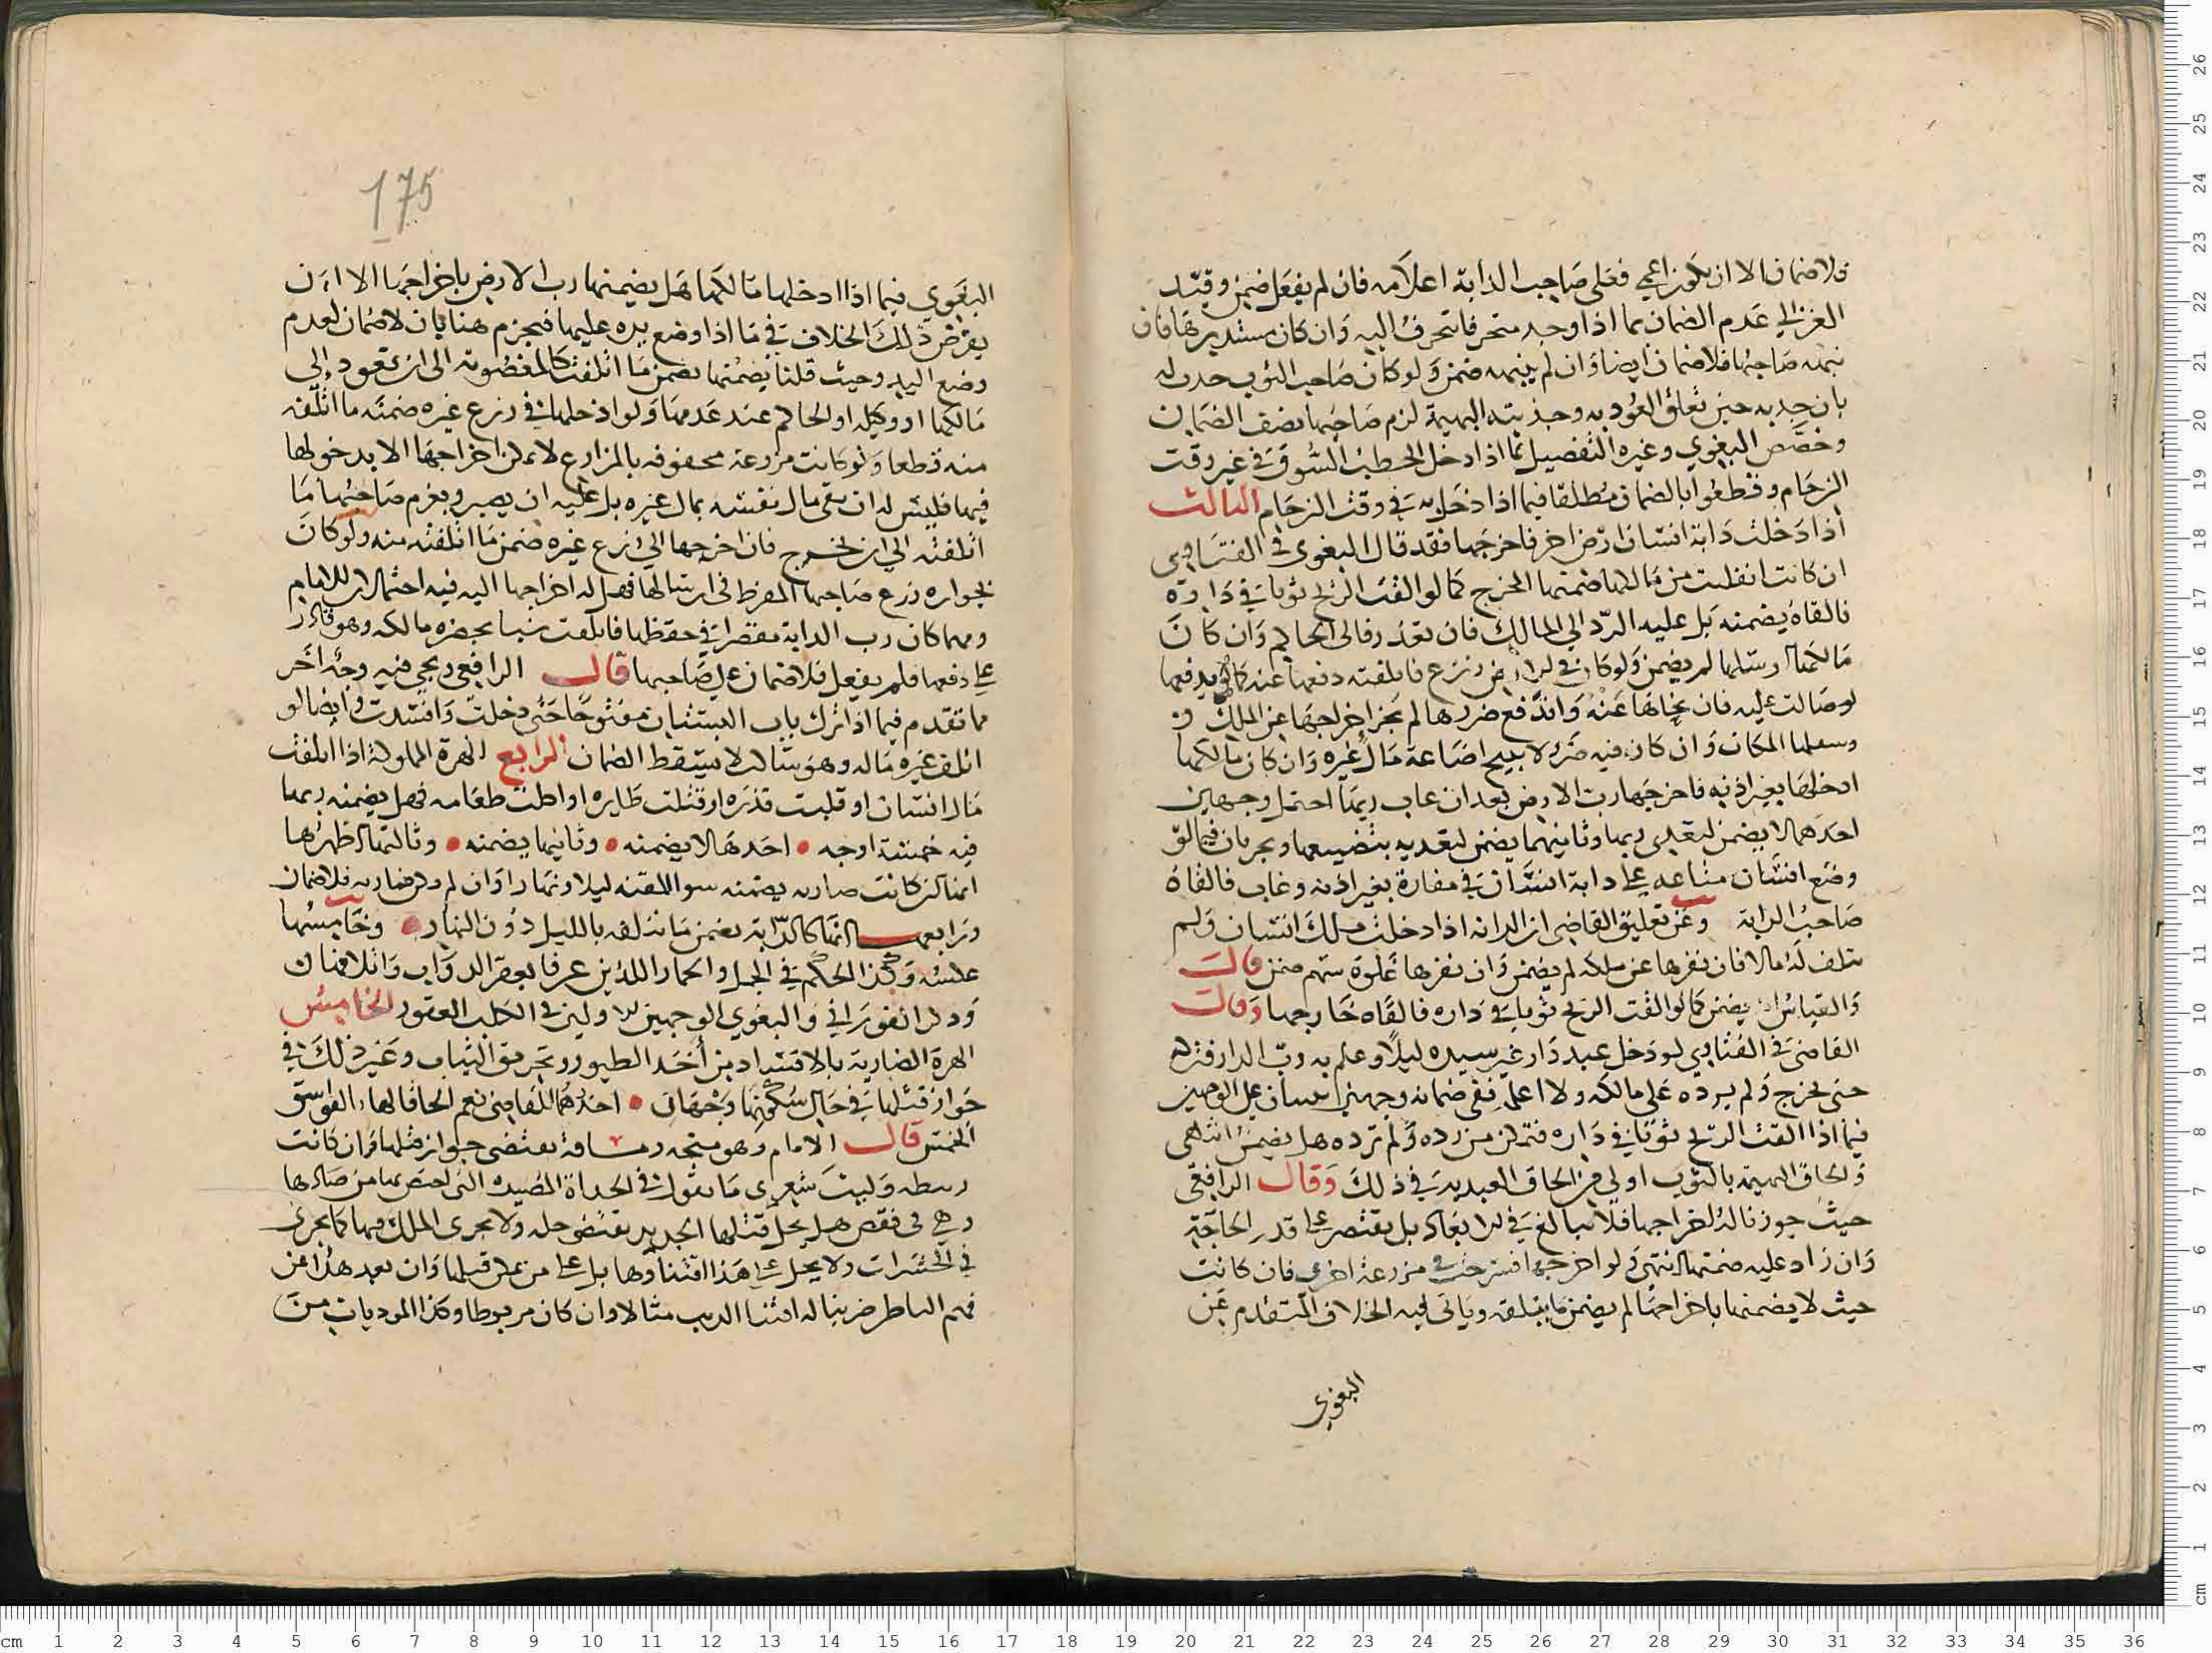 فلا ضمان الا ان يكون اعمى فعلى صاحب الدابة اعلامه فان لم يفعل ضمن وقيد
الغزالي عدم الضمان بما اذا وجد متحرفا يتحرف اليه وان كان مستدبرها فان
نبهه صاحبها فلا ضمان ايضا وان لم ينبهه ضمن ولو كان صاحب الثوب جذبه
بان جذبه حين تعلق العود به وجذبته البهيمة لزم صاحبها نصف الضمان
وخصص البغوي وغيره التفصيل بما اذا دخل الحطب السوق في غير وقت
الزحام وقطعوا بالضمان مطلقا فيما اذا دخل به في وقت الزحام الثالث
اذا دخلت دابة انسان ارض اخر فاخرجها فقد قال البغوي في الفتاوى
ان كانت انفلتت من مالكها ضمنها المخرج كما لو القت الريح ثوبا في داره
فالقاه يضمنه بل عليه الرد الى المالك فان تعذر فالى الحاكم وان كان
مالكها ارسلها لم يضمن ولو كان في الارض زرع فاتلفته دفعها عنه كما يدفعها
لو صالت عليه فان نحاها عنه واندفع ضررها لم يجز اخراجها عن الملك
المكان وان كان فيه ضرر لا يبيح اضاعة مال غيره وان كان مالكها
ادخلها بغير اذنه فاخرجها رب الارض بعد ان غاب ربها احتمل وجهين
احدهما لا يضمن لتعدي ربها وثانيهما يضمن لتعديه بتضييعها ويجريان فيما لو
وضع انسان متاعه على دابة انسان في مفازة بغير اذنه وغاب فالقاه
صاحب الدابة وعن تعليق القاضي ان الدابة اذا دخلت ملك انسان ولم
تتلف له مالا فان نفرها عن ملكه لم يضمن وان نفرها غلوة سهم ضمن قال
والقياس ان يضمن كما لو القت الريح ثوبا في داره فالقاه خارجها وقال
القاضي في الفتاوي لو دخل عبد دار غير سيده ليلا وعلم به رب الدار فتركه
حتى يخرج ولم يرده على مالكه ولا اعلم ففي ضمانه وجهين على الوجهين
فيما اذا القت الريح ثوبا في داره فتمكن من رده ولم يرده هل يضمن انتهى
والحاق البهيمة بالثوب اولى من الحاق العبد به في ذلك وقال الرافعي
حيث جوزنا له اخراجها فلا يبالغ في الابعاد بل يقتصر على قدر الحاجة
وان زاد عليه ضمنها انتهى ولو اخرجها فسرحت في مزرعة اخرى فان كانت
حيث لا يضمنها باخراجها لم يضمن ما يتلفه وياتي فيه الخلاف المتقدم عن
البغوي
175
البغوي فيما اذا ادخلها مالكها هل يضمنها رب الارض باخراجها الا ان
يفرض ذلك الخلاف في ما اذا وضع يده عليها فيجزم هنا بان لا ضمان لعدم
وضع اليد وحيث قلنا يضمنها يضمن ما اتلفت كالمغصوبة الى ان تعود الى
مالكها او وكيله او الحاكم عند عدمها ولو ادخلها في زرع غيره ضمنه ما اتلفته
منه قطعا ولو كانت مزرعة محفوفة بالمزارع لا يمكن اخراجها الا بدخولها
فيها فليس له ان يقي مال نفسه بمال غيره بل عليه ان يصبر ويغرم صاحبها ما
اتلفته الى ان تخرج فان اخرجها الى زرع غيره ضمن ما اتلفته منه ولو كان
بجواره زرع صاحبها المفرط في ارسالها فهل له اخراجها اليه فيه احتمالان للامام
ومهما كان رب الدابة مقصرا في حفظها فاتلفت شيا بحضرة مالكه وهو قادر
على دفعها فلم يفعل فلا ضمان على صاحبها قال الرافعي ويجي فيه وجه اخر
مما تقدم فيما اذا ترك باب البستان مفتوحا حتى دخلت وافسدت وايضا لو
اتلف غيره ماله وهو ساكت لا يسقط الضمان الرابع الهرة المملوكة اذا اتلفت
مال انسان او قلبت قدره او قتلت طايره او اكلت طعامه فهل يضمنه ربها
فيه خمسة اوجه احدها لا يضمنه وثانيها يضمنه وثالثها اظهرها
انها ان كانت ضارية يضمنه سوا اتلفته ليلا ونهارا وان لم تكن ضارية فلا ضمان
ورابعها انها كالدابة يضمن ما تتلفه بالليل دون النهار وخامسها
عكسه وكذا الحكم في الجمل والحمار اللذين عرفا بعقر الدواب واتلافها
وذكر الفوراني والبغوي الوجهين الاولين في الكلب العقور الخامس
الهرة الضارية بالافساد من اخذ الطيور وتحريق الثياب وغير ذلك في
جواز قتلها في حال سكونها وجهان احدهما للقاضي نعم الحاقا لها بالفواسق
الخمس قال الامام وهو متجه ومساقه يقتضي جواز قتلها وان كانت
وليت شعري ما نقول في الحداة المصيدة التي احتص بها من صادها
وهي في قفص هل يحل قتلها الحديث يقتضي حله ولا يجري الملك فيها كما يجري
في الحشرات ولا يحل على هذا اقتناوها بل على من قتلها وان بعد هذا عن
فهم الناظر ضربنا له اقتنا الديب مثالا وان كان مربوطا وكذا الموديات من